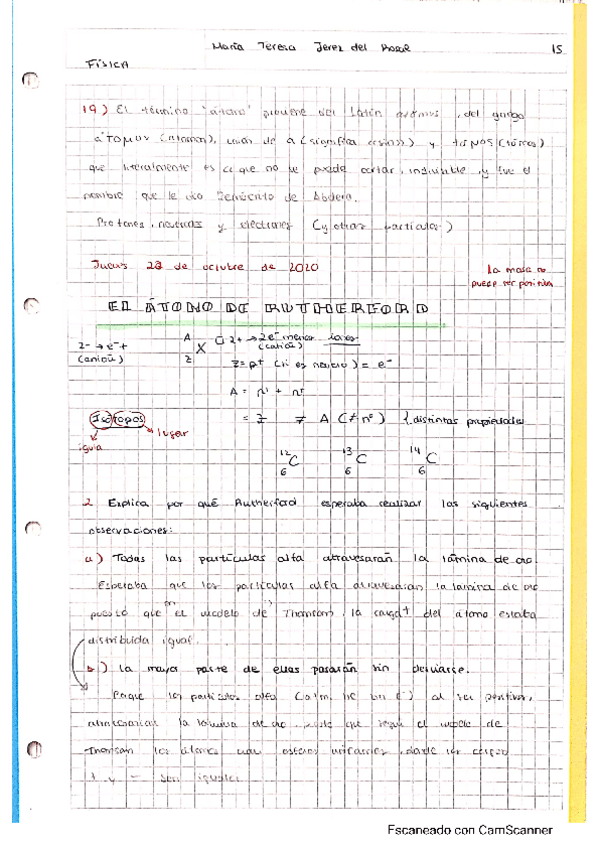 María Teresa Jerez del 15
FÍSICA
19) El término "átomo" proviene del latín atomus, del griego
áTOMOV (átomon), unión de a (significa <<sin>>) y
que literalmente es el que no se puede cortar, indivisible, y fue el
nombre que le dio Demócrito de Abdera.
Protones, neutrones y electrones (y otras partículas)
Jueves 28 de octubre de 2020
La masa no
puede ser positiva
EL ÁTOMO DE RUTHERFORD
2- → e⁻+
(anión)
A
X
Z
2+ → 2e⁻ menos iones
(catión)
Z = p⁺ (si es neutro) = e⁻
A = n° + n°
Isótopos
igual
lugar
= Z ≠ A (≠ n°) distintas propiedades
12 C 6 13 C 6 14 C 6
2 Explica por qué Rutherford esperaba realizar las siguientes
observaciones:
a) Todas las partículas alfa atravesarán la lámina de oro
Esperaba que las partículas alfa atravesaran la lámina de oro
puesto que en el modelo de Thomson, la carga + del átomo estaba
distribuida igual.
b) La mayor parte de ellas pasarán sin desviarse.
Porque las partículas alfa al ser positivas,
la lámina de oro, puesto que según el modelo de
Thomson los átomos donde las cargas
+ y − son iguales
Escaneado con CamScanner